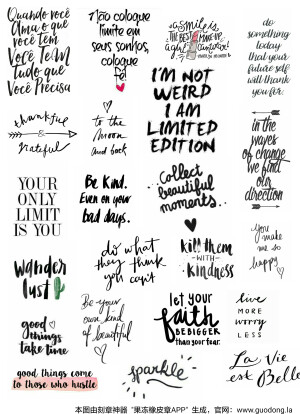 Quando você
Ama o que
você tem
Você Tem
Tudo que
Você Precisa
Não coloque
limite em
seus sonhos,
coloque
fé
A smile is
THE BEST MAKE-UP
do
something
today
that your
future self
will thank
you for.
I'M NOT
WEIRD
I AM
LIMITED
EDITION
thankful
&
grateful
to the
moon
and back
in the
waves
of change
we find
our
direction
YOUR
ONLY
LIMIT
IS YOU
Be Kind.
Even on your
bad days.
Collect
beautiful
moments.
You
make me
so
happy
do what
they think
you can't
kill them
-WITH-
kindness
wander
lust
Be your
own kind
of beautiful
let your
faith
BE BIGGER
than your fear.
live
MORE
worry
LESS
good
things
take time
good things come
to those who hustle
sparkle
La Vie
est Belle
本图由刻章神器"果冻橡皮章APP"生成,官网:www.guodong.la